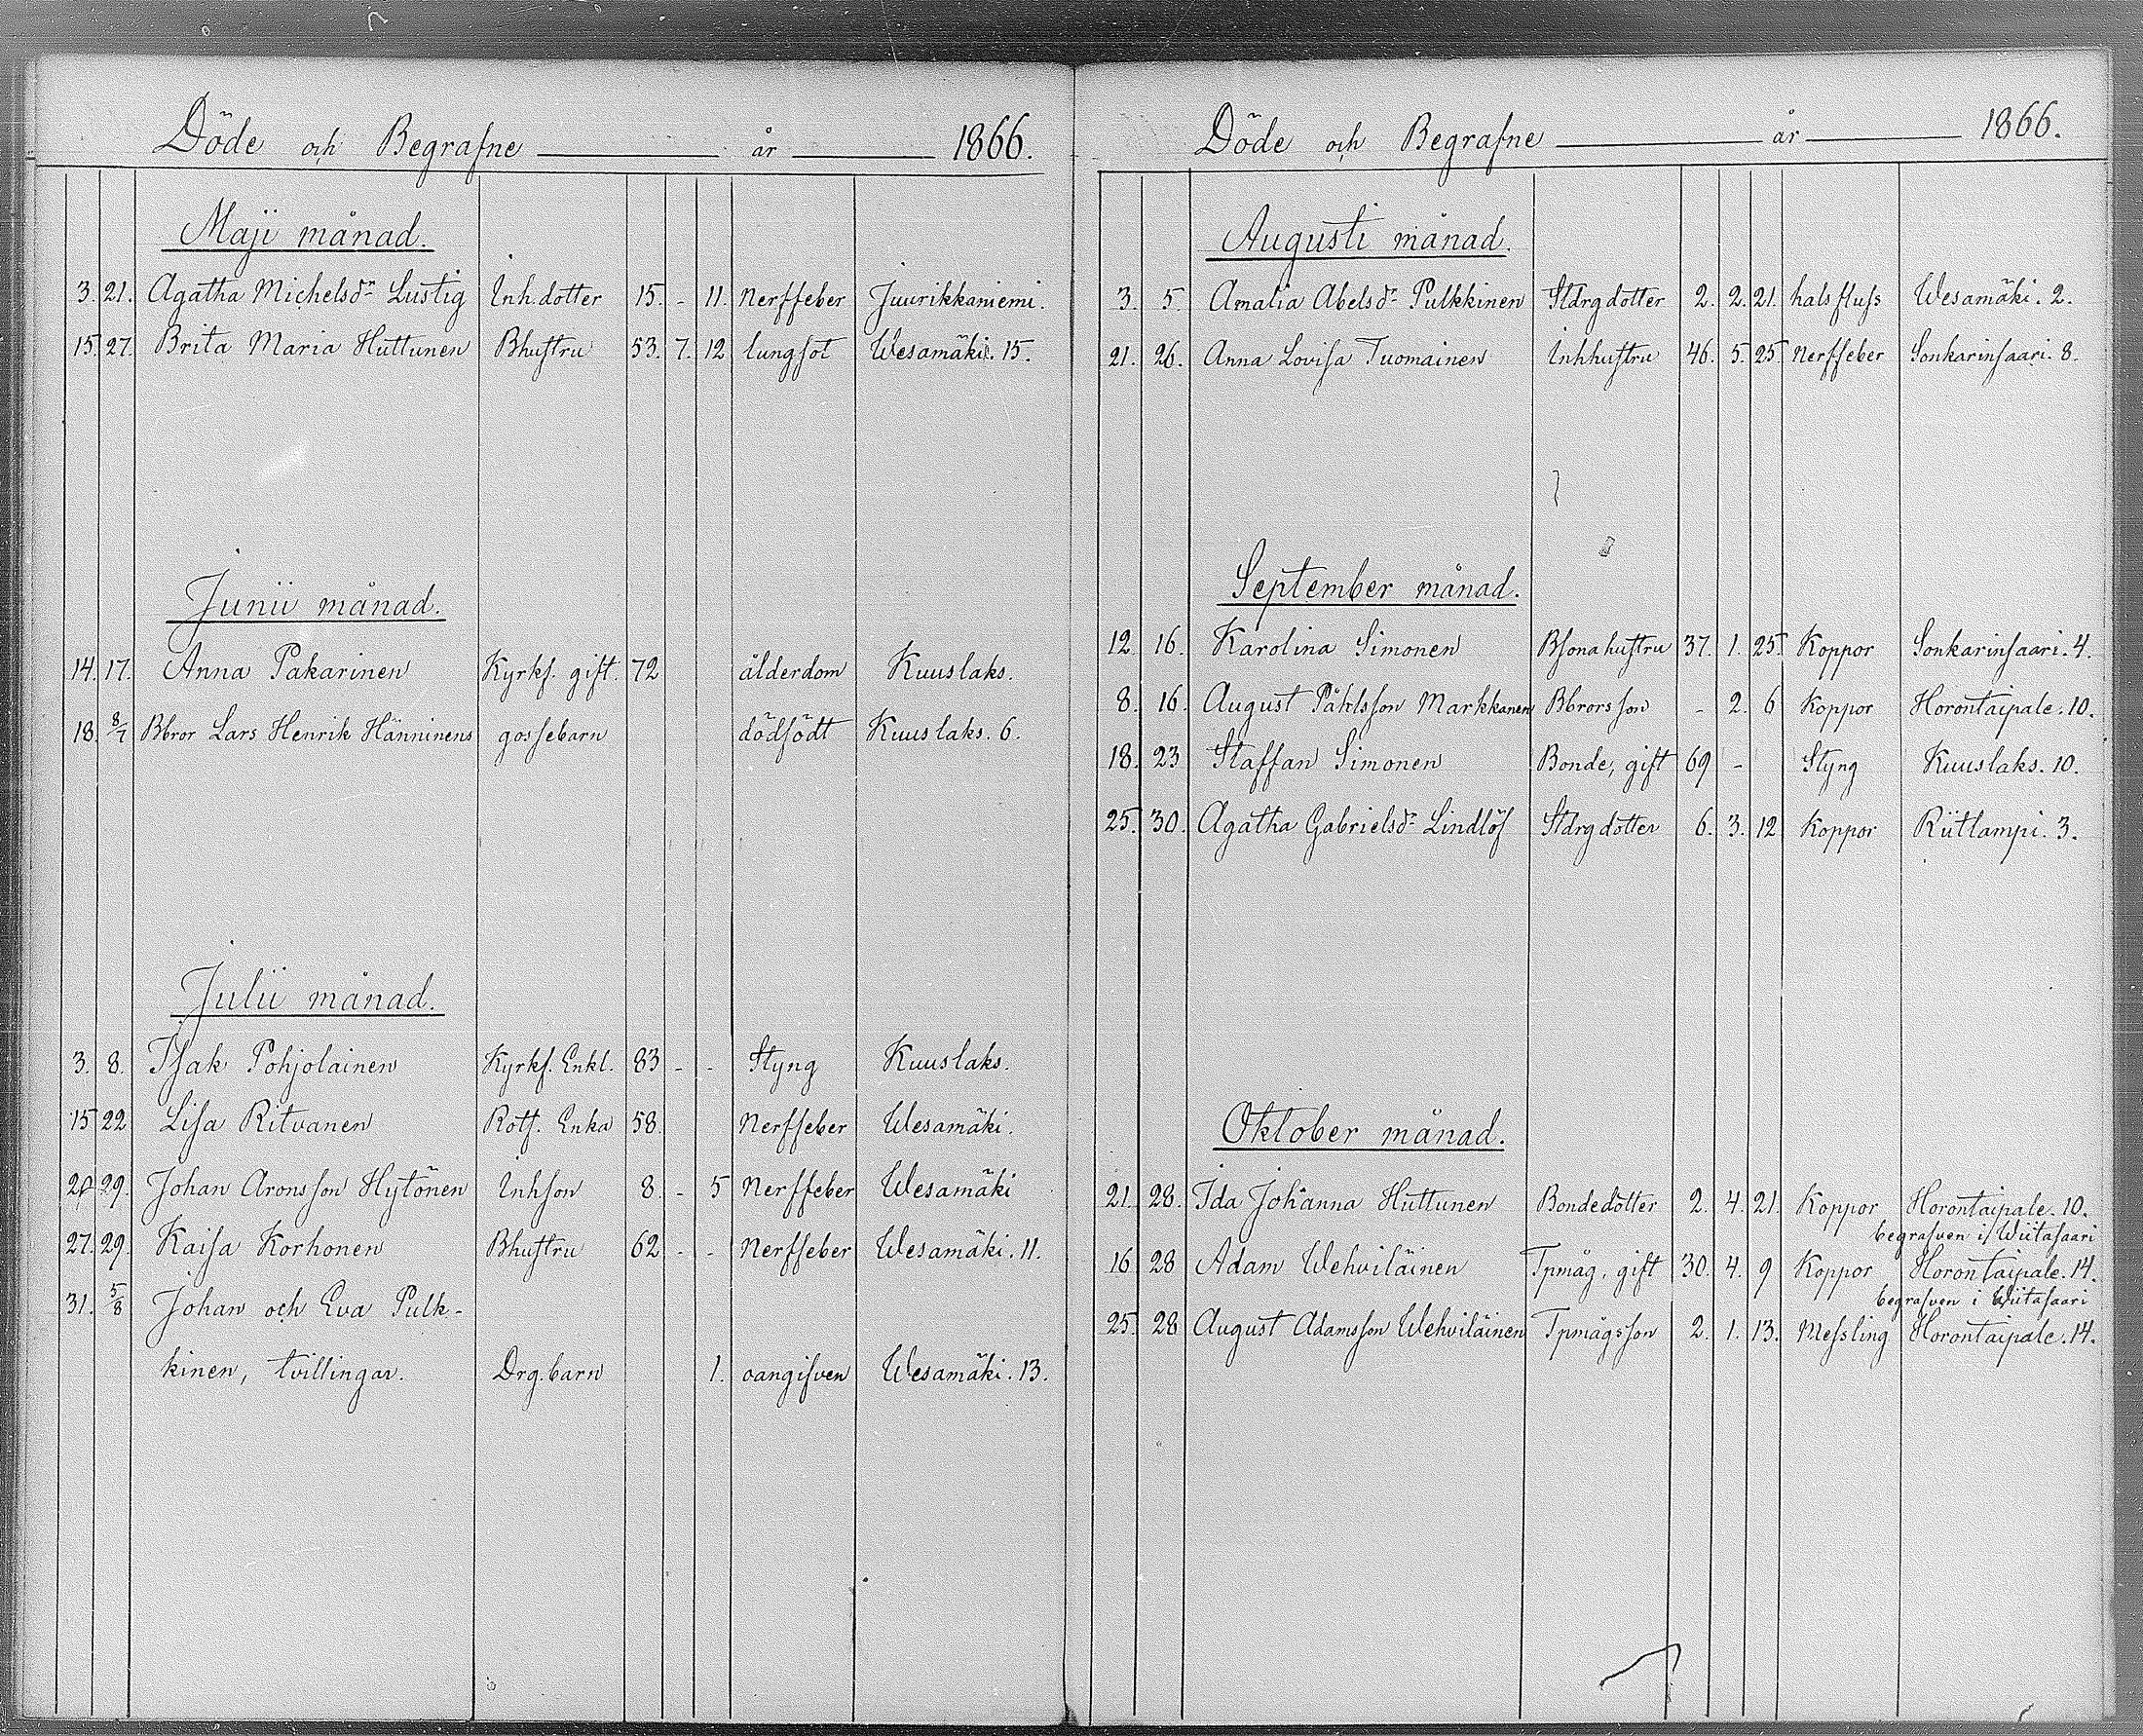 Döde och Begrafne år 1866.
Maji månad.
3. 21. Agatha Michelsdr Lustig Inh.dotter 15. - 11. Nerffeber Juurikkaniemi.
15. 27. Brita Maria Huttunen Bhustru 53. 7. 12 lungsot Wesamäki. 15.
Junii månad.
14. 17. Anna Pakarinen Kyrkf. gift. 72 ålderdom Kuuslaks.
18. 8/7 Bbror Lars Henrik Hänninens gossebarn dödfödt Kuuslaks. 6.
Julii månad.
3. 8. Isak Pohjolainen Kyrkf. Enkl. 83 - - Styng Kuuslaks.
15 22 Lisa Ritvanen Rotf. Enka 58. Nerffeber Wesamäki.
29. Johan Aronsson Hytönen Inhson 8. - 5 Nerffeber Wesamäki
27. 29. Kaisa Korhonen Bhustru 62 - - Nerffeber Wesamäki. 11.
31. 5/8 Johan och Eva Pulk-
kinen, tvillingar. Drg.barn 1. oangifven Wesamäki. 13.
Döde och Begrafne år 1866.
Augusti månad.
3. 5. Amalia Abelsdr Pulkkinen Stdrgdotter 2. 2. 21. halsfluss Wesamäki. 2.
21. 26. Anna Lovisa Tuomainen Inhhustru 46. 5. 25 Nerffeber Sonkarinsaari. 8.
September månad.
12. 16. Karolina Simonen Bsonahustru 37. 1. 25. Koppor Sonkarinsaari. 4.
8. 16. August Påhlsson Markkanen Bbrorsson - 2. 6 Koppor Horontaipale. 10.
18. 23 Staffan Simonen Bonde, gift 69 - Styng Kuuslaks. 10.
25. 30. Agatha Gabrielsdr Lindlöf Stdrgdotter 6. 3. 12 Koppor Riitlampi. 3.
Oktober månad.
21. 28. Ida Johanna Huttunen Bondedotter 2. 4. 21. Koppor Horontaipale. 10.
begrafven i Wiitasaari
16 28 Adam Wehviläinen Tpmåg, gift 30. 4. 9 Koppor Horontaipale. 14.
begrafven i Wiitasaari
25. 28 August Adamsson Wehviläinen Tpmågsson 2. 1. 13. Messling Horontaipale. 14.